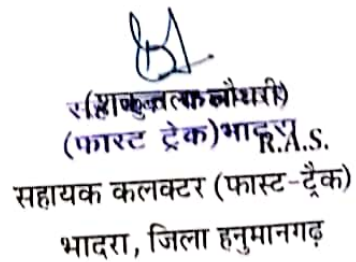 (शकुन्तला चौधरी)
(फास्ट ट्रेक)भादरा R.A.S.
सहायक कलक्टर (फास्ट-ट्रैक)
भादरा, जिला हनुमानगढ़